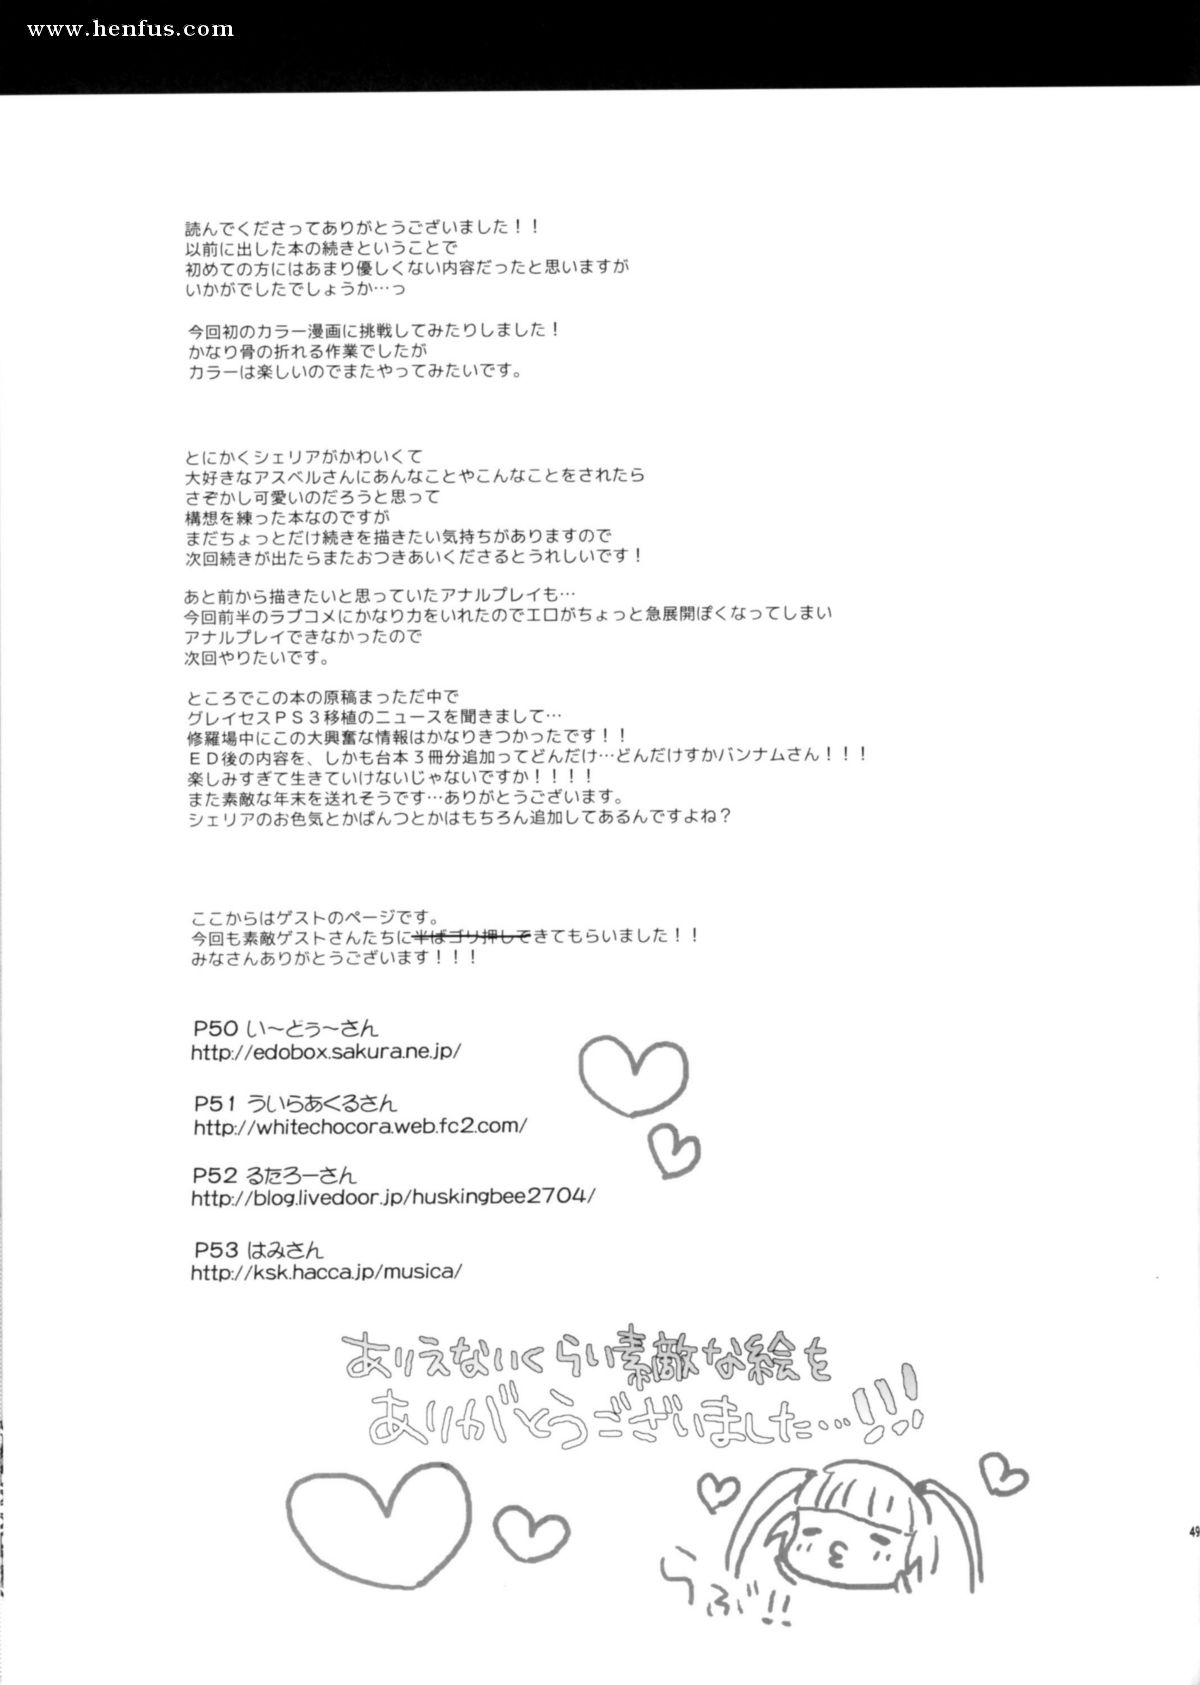 www.henfus.com
読んでくださってありがとうございました！！
以前に出した本の続きということで
初めての方にはあまり優しくない内容だったと思いますが
いかがでしたでしょうか…っ
今回初のカラー漫画に挑戦してみたりしました！
かなり骨の折れる作業でしたが
カラーは楽しいのでまたやってみたいです。
とにかくシェリアがかわいくて
大好きなアスベルさんにあんなことやこんなことをされたら
さぞかし可愛いのだろうと思って
構想を練った本なのですが
まだちょっとだけ続きを描きたい気持ちがありますので
次回続きが出たらまたおつきあいくださるとうれしいです！
あと前から描きたいと思っていたアナルプレイも…
今回前半のラブコメにかなり力をいれたのでエロがちょっと急展開ぽくなってしまい
アナルプレイできなかったので
次回やりたいです。
ところでこの本の原稿まっただ中で
グレイセスＰＳ３移植のニュースを聞きまして…
修羅場中にこの大興奮な情報はかなりきつかったです！！
ＥＤ後の内容を、しかも台本３冊分追加ってどんだけ…どんだけすかバンナムさん！！！
楽しみすぎて生きていけないじゃないですか！！！！
また素敵な年末を送れそうです…ありがとうございます。
シェリアのお色気とかぱんつとかはもちろん追加してあるんですよね？
ここからはゲストのページです。
今回も素敵ゲストさんたちに半ばゴリ押しできてもらいました！！
みなさんありがとうございます！！！
P50 い〜どぅ〜さん
http://edobox.sakura.ne.jp/
P51 ういらあくるさん
http://whitechocora.web.fc2.com/
P52 るたろーさん
http://blog.livedoor.jp/huskingbee2704/
P53 はみさん
http://ksk.hacca.jp/musica/
ありえないくらい素敵な絵を
ありがとうございました…!!!
らぶ!!
49